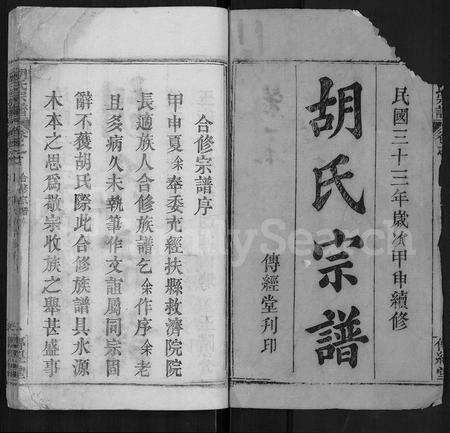 民國三十三年歲次甲申續修
胡氏宗譜
傳經堂刊印
合修宗譜序
甲申夏余奉委充經扶縣救濟院院
長適族人合修族譜乞余作序余老
且多病久未執筆作文誼屬同宗固
辭不獲胡氏際此合修族譜具水源
木本之思爲敬宗收族之舉甚盛事
FamilySearch